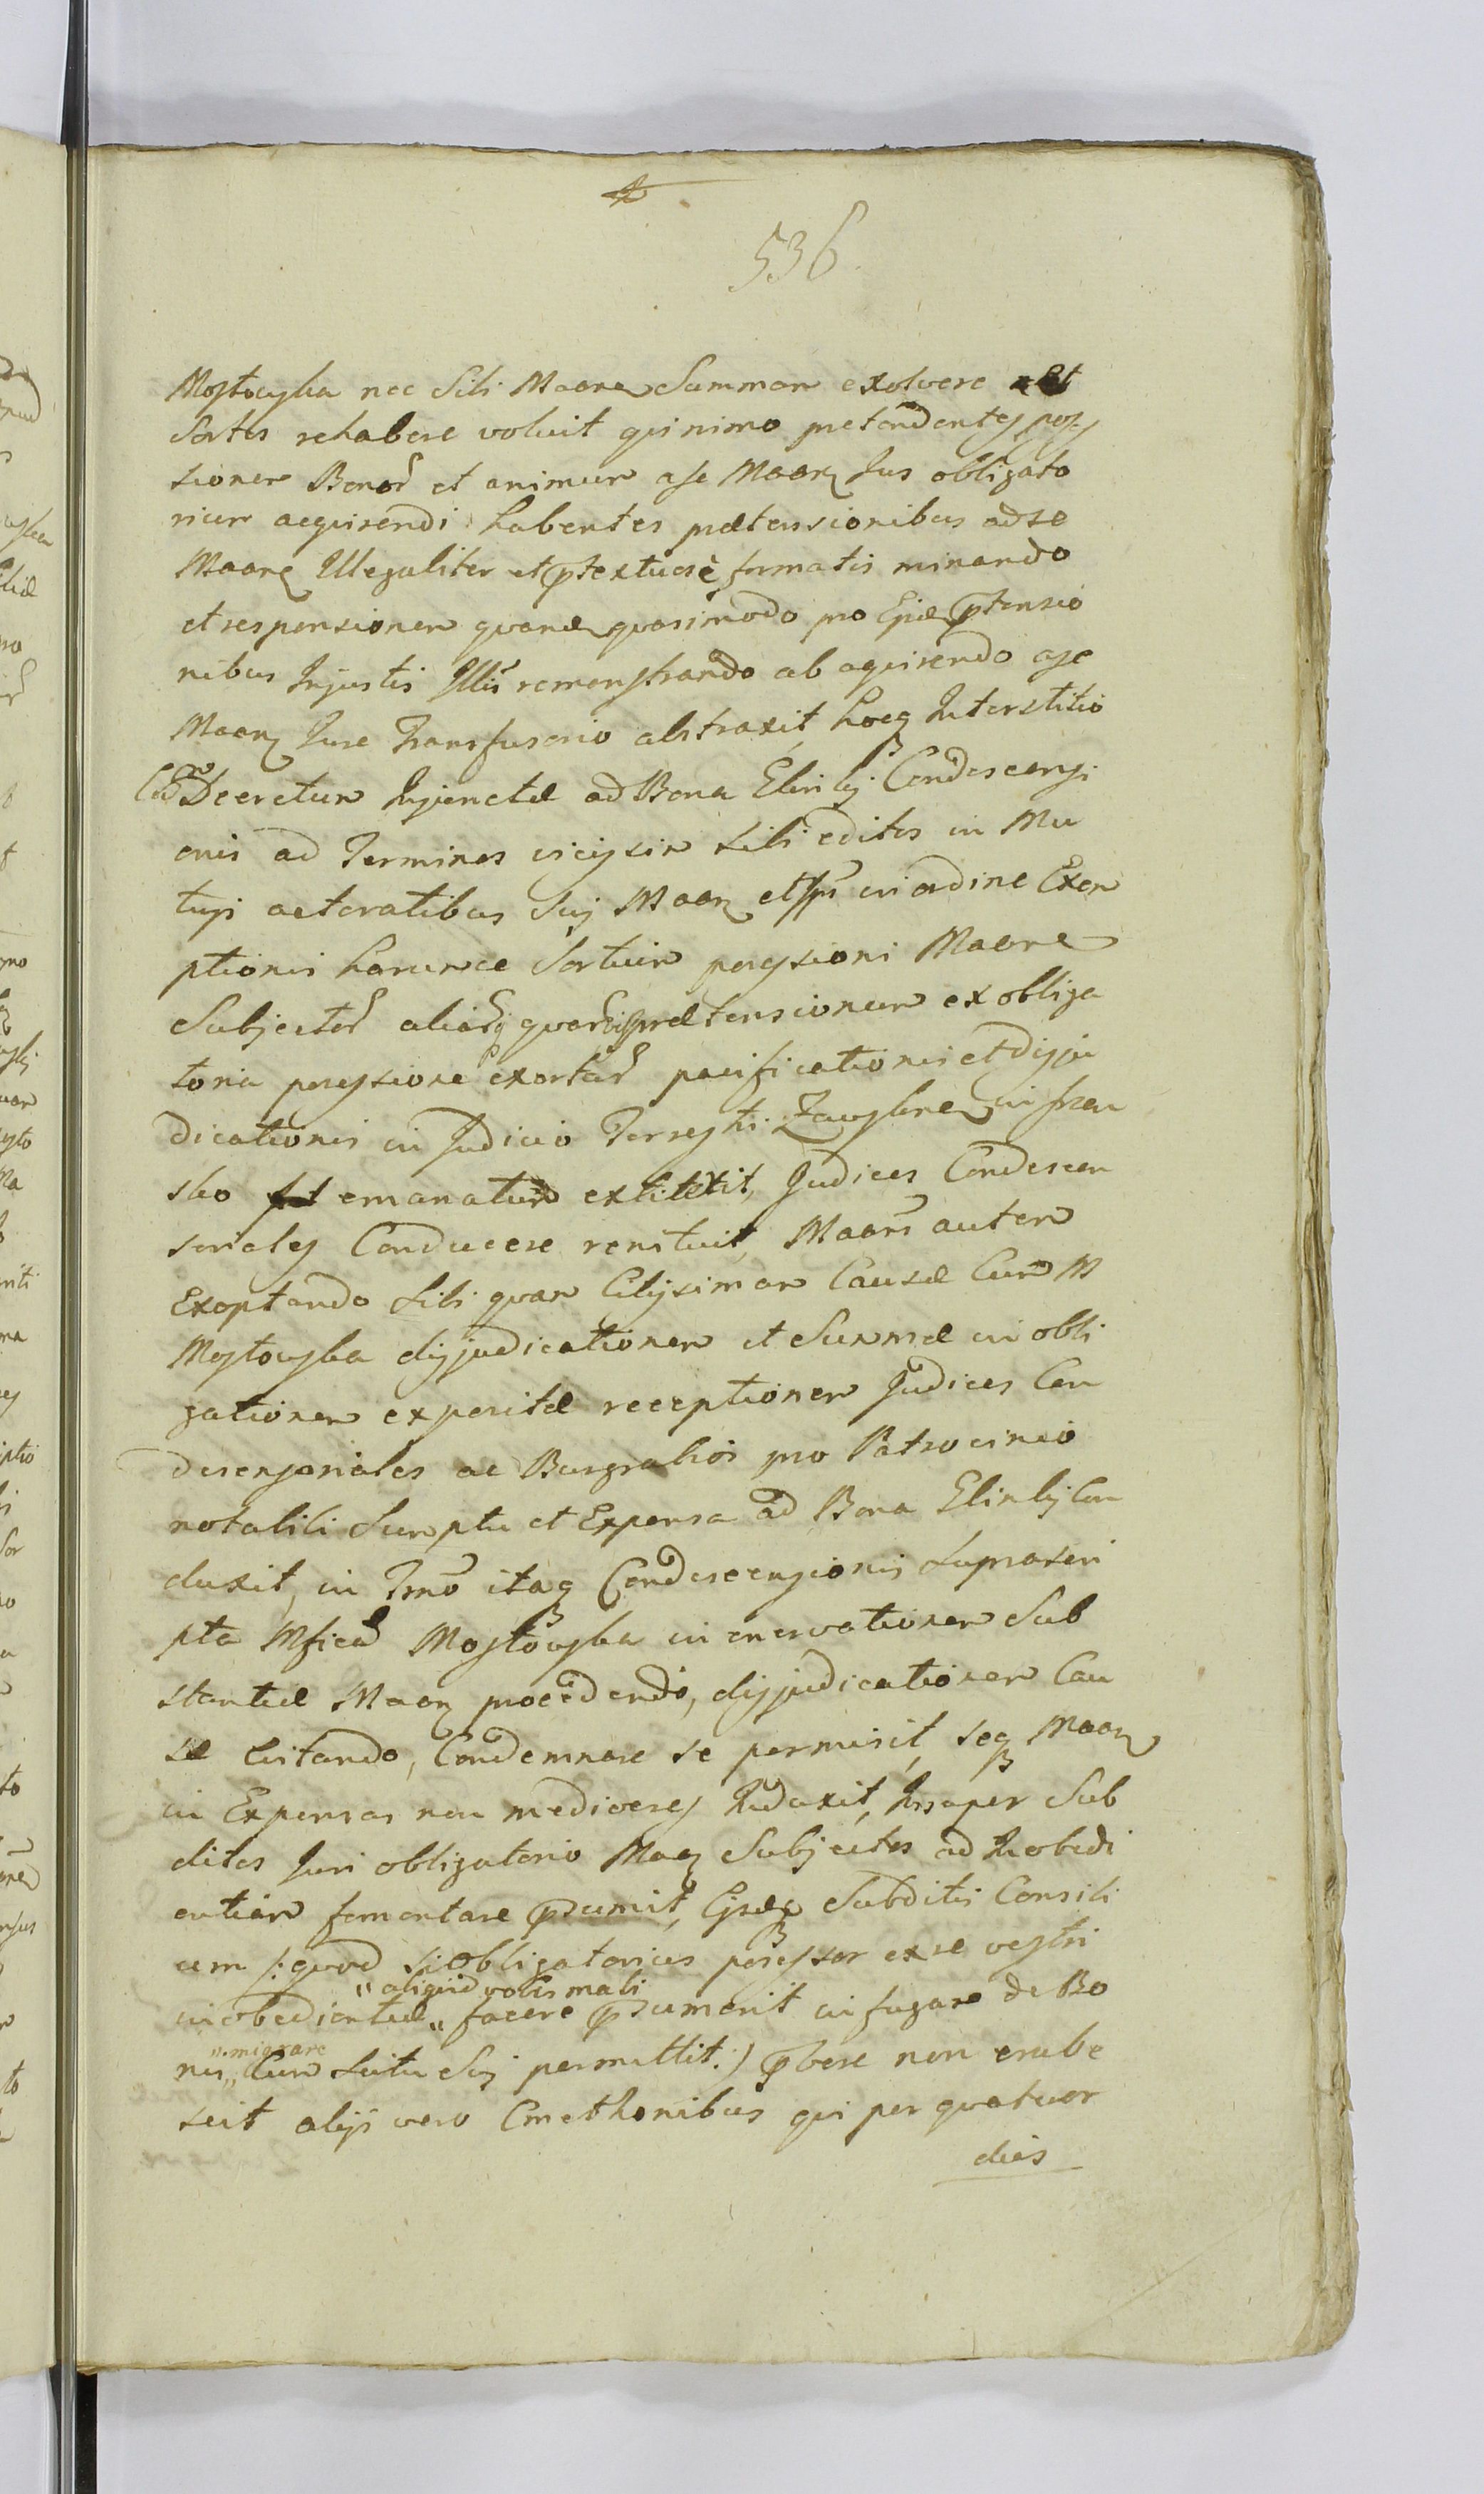 536.
Mostowska nec Sibi Maare Summam exolvere et
Sortes rehabere voluit quinimo pretendentes pos
sionem Bonor et animum a se Maarz Jus obligato
rium acquirendi habentes prætensionibus ad se
Maarz Illegaliter et ptextuosè formatis minando
et responsionem quasimodo pro Ejæ ptensio
nibus Injustis Illis remonstrando ab aquirendo a se
Maarz Jure Transfusorio abstraxit, hocq Interstitio
Decretum Injunctæ ad Bona Elinki Condescensi
onis ad Terminos sibi editos in
tuji actoratibus Suj Maarz et in ordine Exem
ptionis harumce Sortium possessioni Maare
Subjectar aliarq prætensionum ex obliga
toria possessione exortar pacificationis et disju
dicationis in Judicio Terrestri Zawskrz in
sko emanatum extitit, Judices Condescen
soriales Conducere renituit, Maars autem
Exoptando Sibi quam Citissimam Causæ Cum M
Mostowska disjudicationem et Summæ in obli
gationem expositæ receptionem Judices Con
descensoriales ac Burgrabios pro Patrocinio
notabili Sumptu et Expensa ad Bona Elinki Con
duxit, in Tmo itaq Condescensionis suprascri
pta Mfica Mostowska in enervationem Sub
stantiæ Maarz procedendo, disjudicationem Cau
sæ Evitando, Condemnare se permisit, seq Maarz
in Expensas non mediocres Induxit, Insuper Sub
ditos Juri obligatorio Maarz Subjectos ad Inobedi
entiam fomentare psumit, Ejsdq Subditis Consili
um /: quod si Obligatorius possessor ex se vestri
" aliquid vobis mali
inobedientiæ " facere psumerit in fugare de Bo
" migrare
nis " Cum Scitu Suj permittit :) pbere non erube
scit alijs vero Cmethonibus qui per quatuor
dies